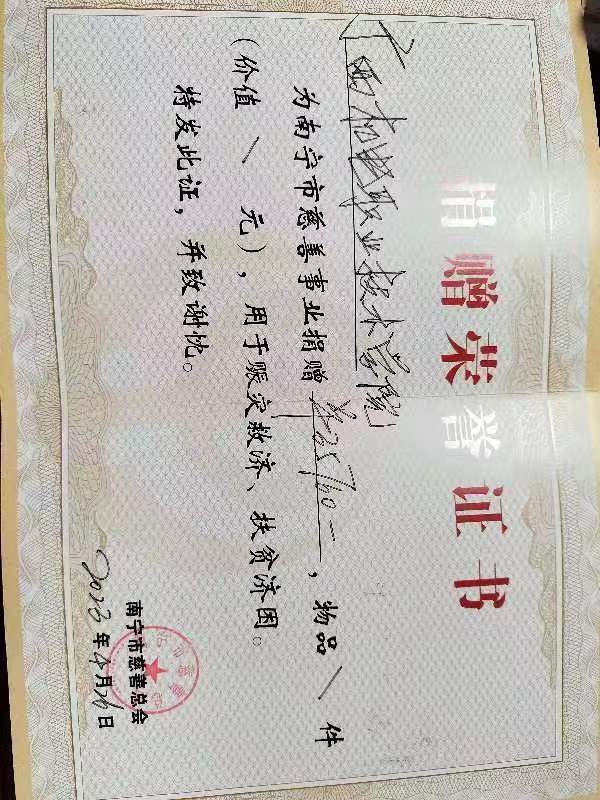 捐赠荣誉证书
广西机电职业技术学院
为南宁市慈善事业捐赠，物品 \ 件
（价值 \ 元），用于赈灾救济、扶贫济困。
特发此证，并致谢忱。
南宁市慈善总会
2023年4月26日